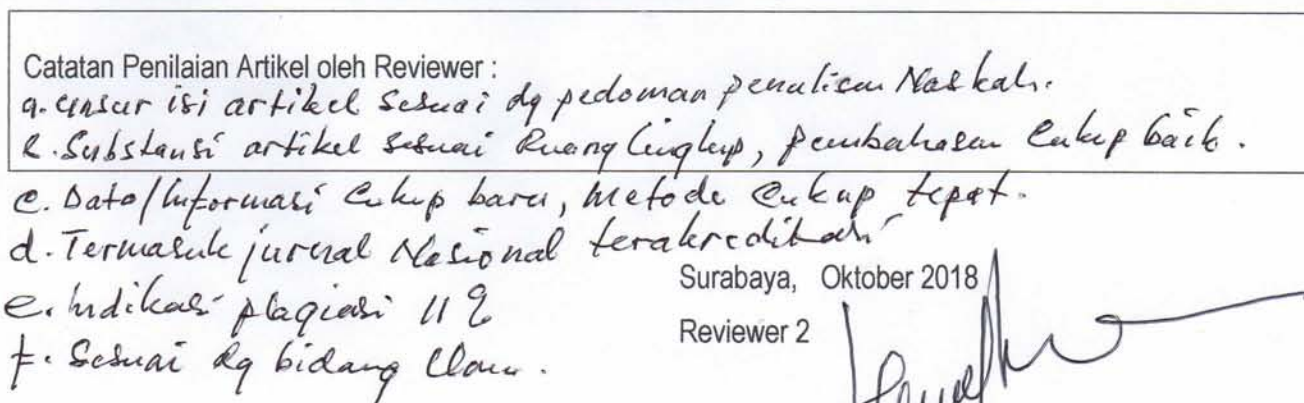 Catatan Penilaian Artikel oleh Reviewer :
a. unsur isi artikel sesuai dg pedoman penulisan Naskah.
b. Substansi artikel sesuai Ruang lingkup, pembahasan Cukup baik.
c. Data/Informasi Cukup baru, metode Cukup tepat.
d. Termasuk jurnal Nasional terakreditasi
e. Indikasi plagiasi 11 %
f. Sesuai dg bidang Ilmu.
Surabaya, Oktober 2018
Reviewer 2